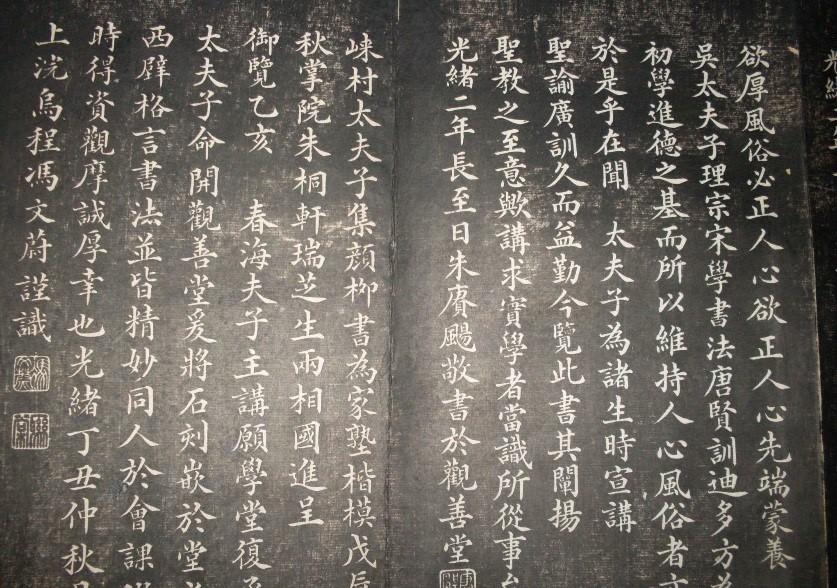 光緒
欲厚風俗必正人心欲正人心先端蒙養
吳太夫子理宗宋學書法唐賢訓迪多方
初學進德之基而所以維持人心風俗者
於是乎在聞 太夫子為諸生時宣講
聖諭廣訓久而益勤今覽此書其闡揚
聖教之至意歟講求實學者當識所從事
光緒二年長至日朱賡颺敬書於觀善堂
崍村太夫子集顏栁書為家塾楷模戊辰
秋掌院朱桐軒瑞芝生兩相國進呈
御覽乙亥 春海夫子主講願學堂復
太夫子命開觀善堂爰將石刻嵌於堂
西壁格言書法並皆精妙同人於會課
時得資觀摩誠厚幸也光緒丁丑仲秋
上浣烏程馮文蔚謹識